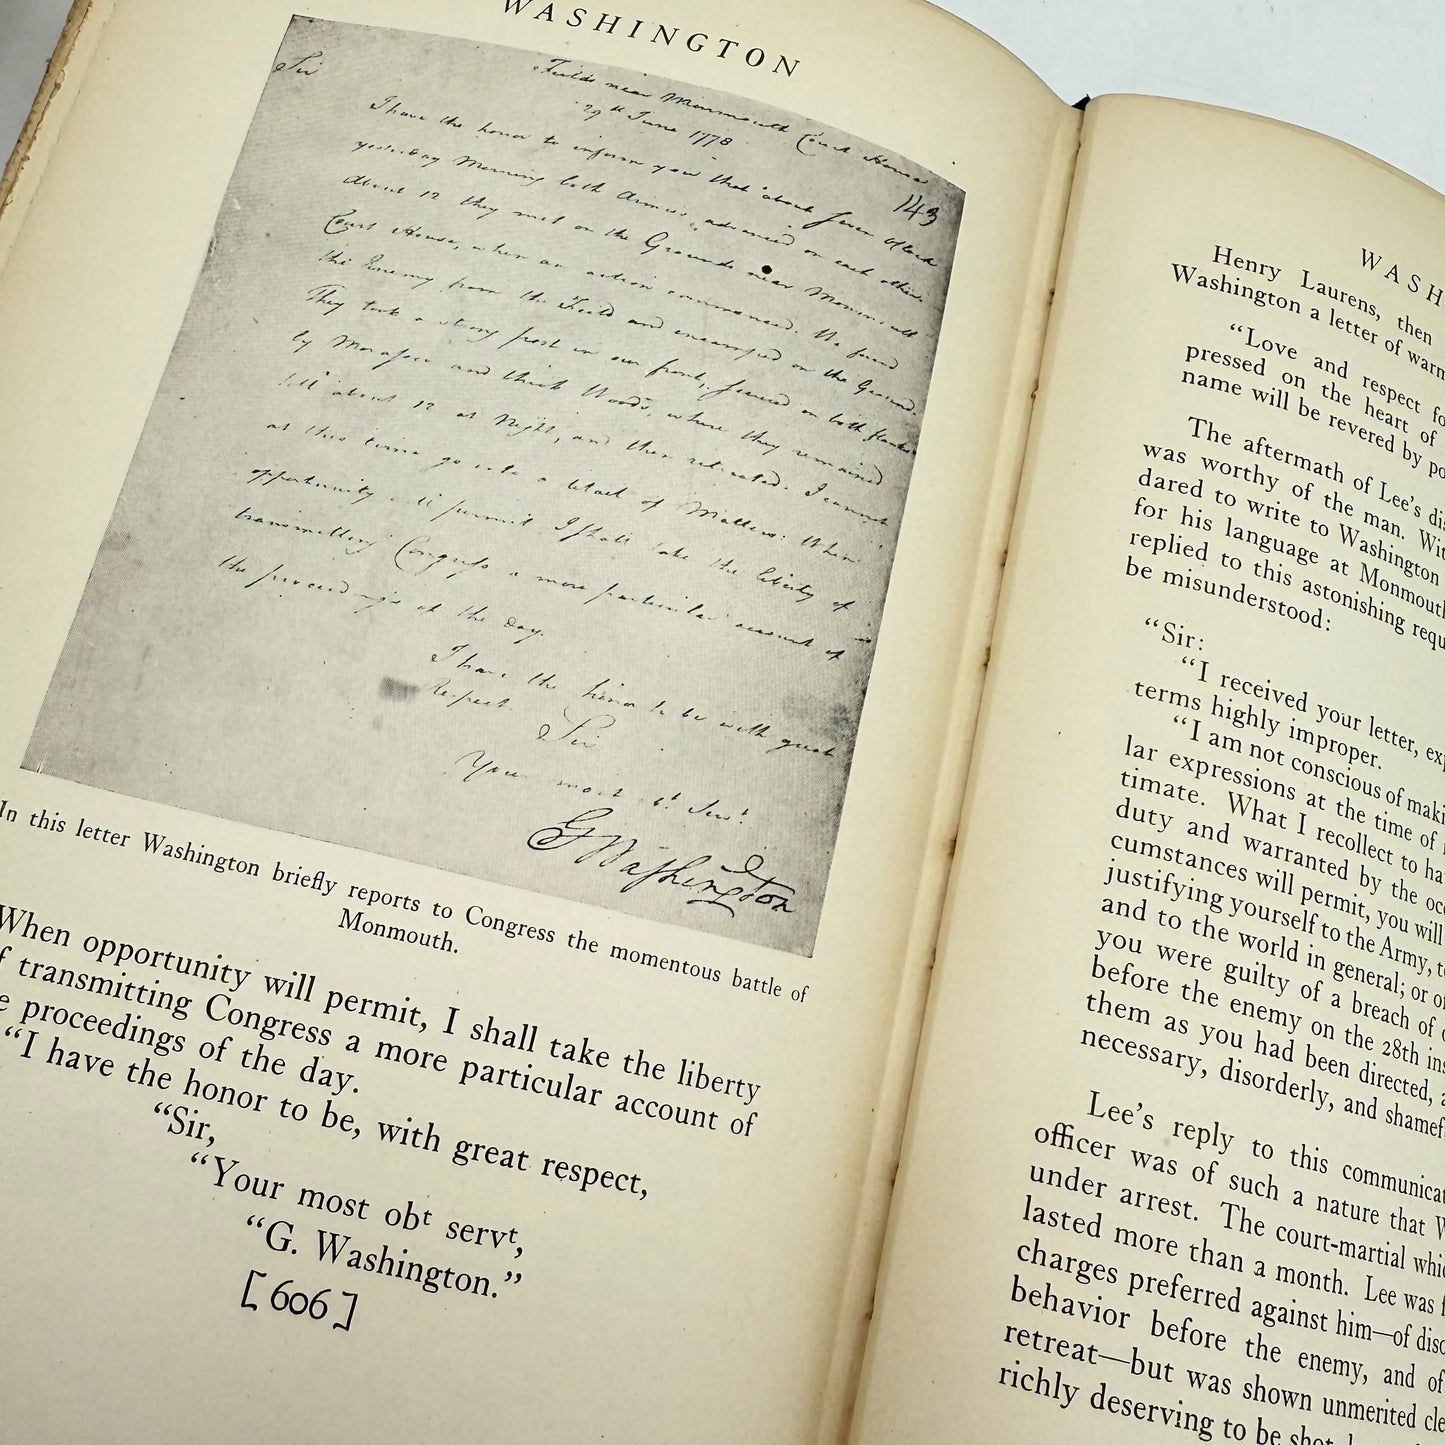 WASHINGTON
Sir
Fields near Monmouth Court House
29th June 1778
143
I have the honor to inform you that about seven OClock
yesterday Morning both Armies advanced on each other.
About 12 they met on the Grounds near Monmouth
Court House, when an action commenced. We found
the Enemy from the Field and encamped on the Ground.
They took a strong post in our front, secured on both flanks
by Morasses and thick Woods, where they remained
till about 12 at Night, and then retreated. I cannot
at this time go into a detail of Matters. When
opportunity will permit I shall take the liberty of
transmitting Congress a more particular account of
the proceedings of the day.
I have the honor to be with great
Respect
Sir
Your most obt Servt
G Washington
In this letter Washington briefly reports to Congress the momentous battle of
Monmouth.
When opportunity will permit, I shall take the liberty
transmitting Congress a more particular account of
proceedings of the day.
“I have the honor to be, with great respect,
“Sir,
“Your most obt servt,
“G. Washington.”
[606]
WASH
Henry Laurens, then
Washington a letter of
“Love and respect
pressed on the heart of
name will be revered by
The aftermath of Lee’s
was worthy of the man.
dared to write to Washington
for his language at
replied to this astonishing
be misunderstood:
“Sir:
“I received your letter,
terms highly improper.
“I am not conscious of
lar expressions at the time of
timate. What I recollect to
duty and warranted by the
cumstances will permit, you will
justifying yourself to the Army,
and to the world in general; or
you were guilty of a breach of
before the enemy on the 28th
them as you had been directed,
necessary, disorderly, and
Lee’s reply to this
officer was of such a nature that
under arrest. The court-martial
lasted more than a month. Lee was
charges preferred against him—of
behavior before the enemy, and of
retreat—but was shown unmerited
richly deserving to be shot